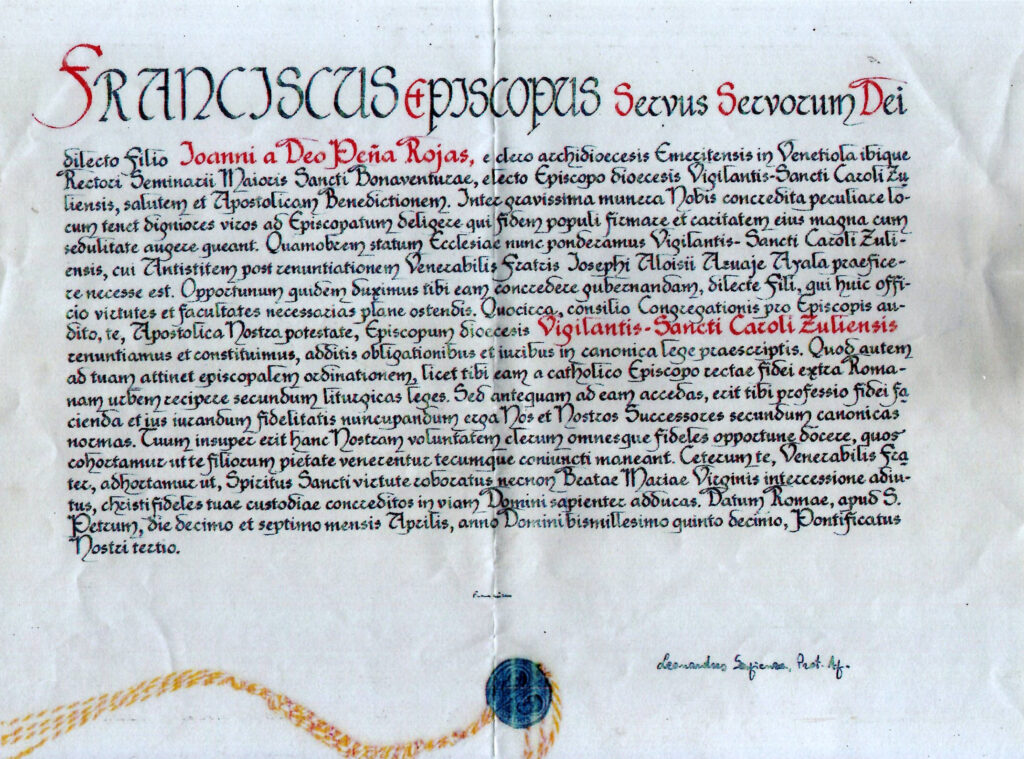 FRANCISCUS EPISCOPUS Servus Servorum Dei
dilecto Filio Ioanni a Deo Peña Rojas, e clero archidioecesis Emeritensis in Venetiola ibique
Rectori Seminarii Maioris Sancti Bonaventurae, electo Episcopo dioecesis Vigilantis-Sancti Caroli Zu
liensis, salutem et Apostolicam Benedictionem. Inter gravissima munera Nobis concredita peculiare lo-
cum tenet digniores viros ad Episcopatum deligere qui fidem populi firmare et caritatem eius magna cum
sedulitate augere queant. Quamobrem statum Ecclesiae nunc ponderamus Vigilantis-Sancti Caroli Zuli-
ensis, cui Antistitem post renuntiationem Venerabilis Fratris Iosephi Aloisii Azuaje Ayala praefice-
re necesse est. Opportunum quidem duximus tibi eam concredere gubernandam, dilecte Fili, qui huic offi-
cio virtutes et facultates necessarias plane ostendis. Quocirca, consilio Congregationis pro Episcopis au-
dito, te, Apostolica Nostra potestate, Episcopum dioecesis Vigilantis-Sancti Caroli Zuliensis
renuntiamus et constituimus, additis obligationibus et iuribus in canonica lege praescriptis. Quod autem
ad tuam attinet episcopalem ordinationem, licet tibi eam a catholico Episcopo rectae fidei extra Roma-
nam urbem recipere secundum liturgicas leges. Sed antequam ad eam accedas, erit tibi professio fidei fa
cienda et ius iurandum fidelitatis nuncupandum erga Nos et Nostros Successores secundum canonicas
normas. Tuum insuper erit hanc Nostram voluntatem clerum omnesque fideles opportune docere, quos
cohortamur ut te filiorum pietate venerentur tecumque coniuncti maneant. Ceterum te, Venerabilis Fra
ter, adhortamur ut, Spiritus Sancti virtute roboratus necnon Beatae Mariae Virginis intercessione adiu-
tus, christifideles tuae custodiae concreditos in viam Domini sapienter adducas. Datum Romae, apud S.
Petrum, die decimo et septimo mensis Aprilis, anno Domini bismillesimo quinto decimo, Pontificatus
Nostri tertio.
Leonardus Sapienza, Prot. Ap.